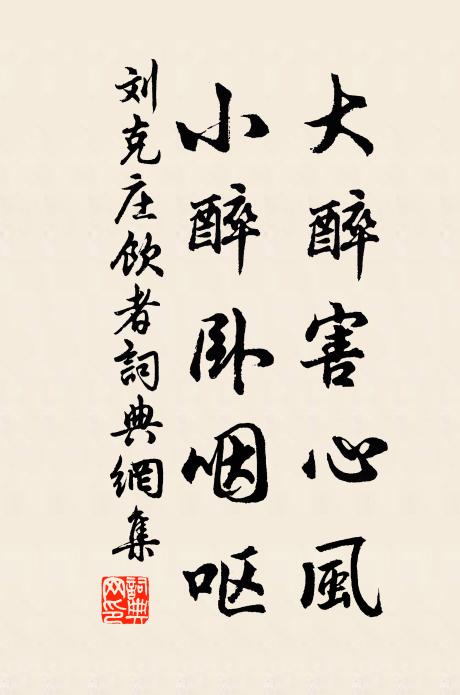 大醉害心風
小醉卧咽呕
刘克庄饮者詞典網集
詞典网印